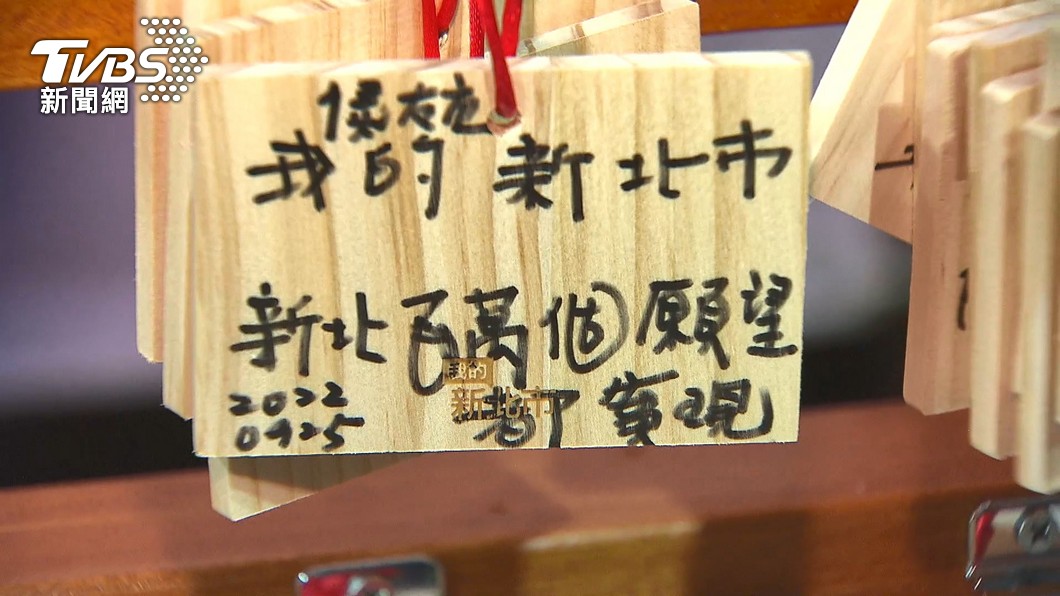 TVBS
新聞網
侯友宜
我的新北市
新北百萬個願望
都實現
2022
0925
我的
新北市